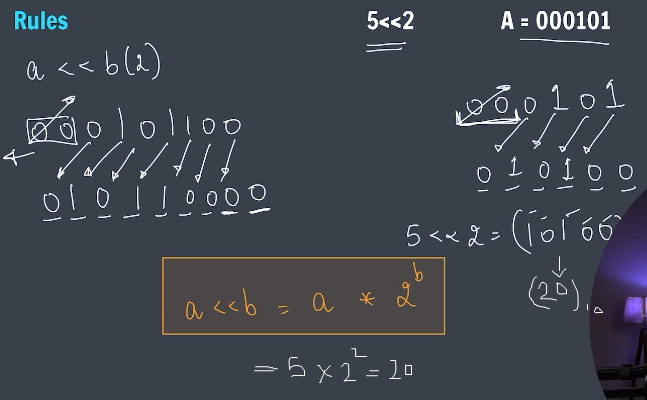 Rules
5<<2
A = 000101
a << b(2)
000101100
000101
010110000
010100
5 << 2 = (10100
(20)10
a << b = a * 2^b
= 5 × 2^2 = 20